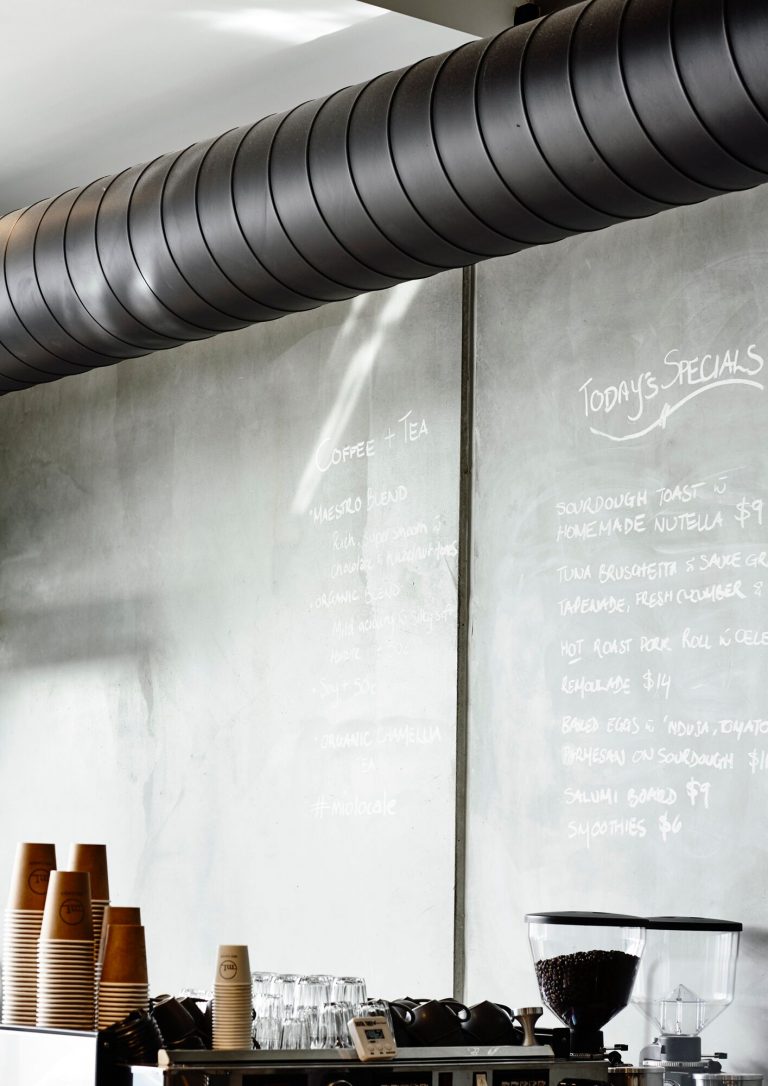 COFFEE + TEA
• MAESTRO BLEND
Rich, super smooth w
chocolate & hazelnut tones
• ORGANIC BLEND
Mild acidity w silky
+ 50c
• Soy + 50c
• ORGANIC CHAMELLIA
TEA
#miolocale
TODAY'S SPECIALS
SOURDOUGH TOAST w
HOMEMADE NUTELLA $9
TUNA BRUSCHETTA SAUCE GR
TAPENADE, FRESH CUCUMBER &
HOT ROAST PORK ROLL w CELE
REMOULADE $14
BAKED EGGS w 'NDUJA, TOMATO
PARMESAN ON SOURDOUGH
SALUMI BOARD $9
SMOOTHIES $6